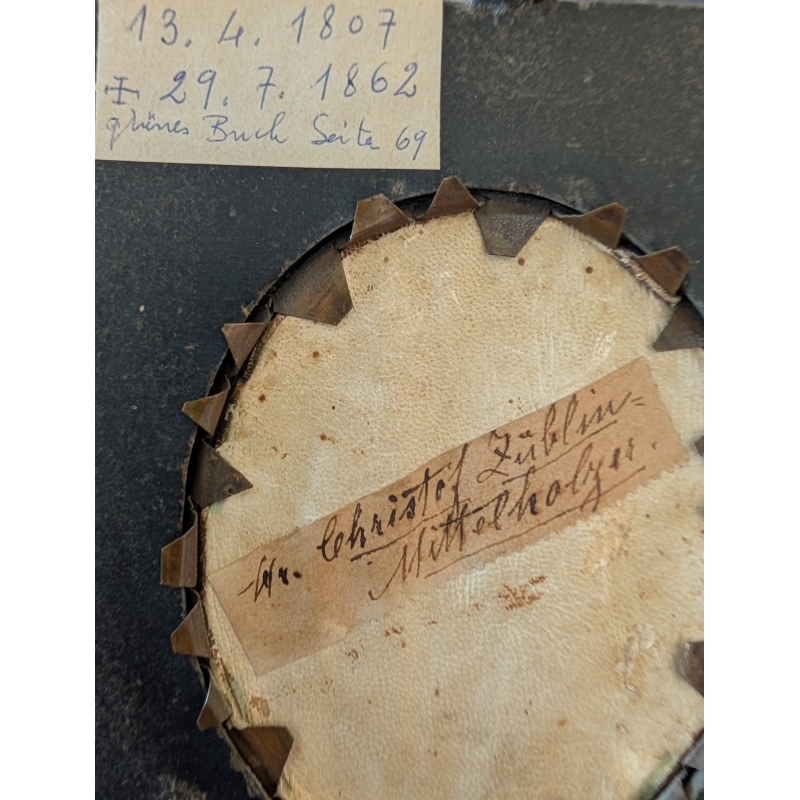 13. 4. 1807
29. 7. 1862
grünes Buch Seite 69
Hr. Christof Züblin=
Mittelholzer.